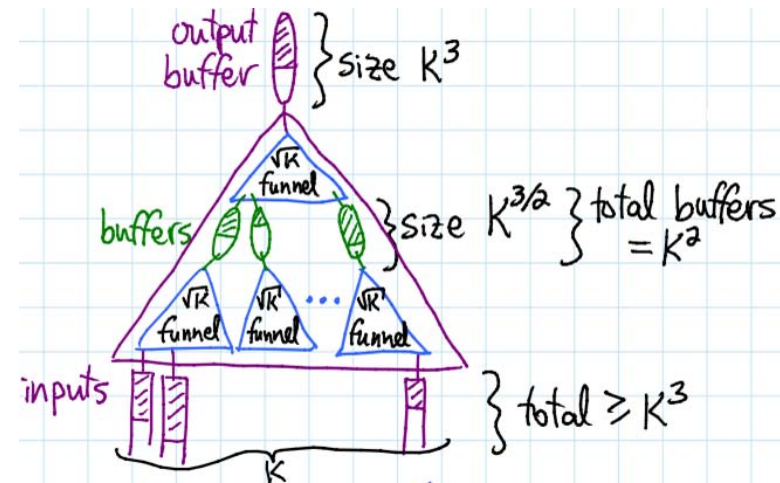 output
buffer
size K³
√K
funnel
buffers
size K^{3/2}
total buffers
= K²
√K
funnel
√K
funnel
...
√K
funnel
inputs
total ≥ K³
K